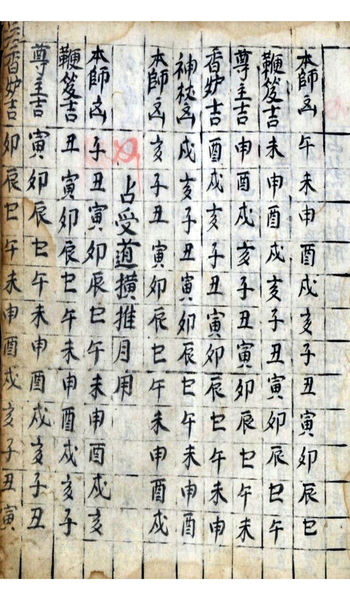 本師凶午未申酉戌亥子丑寅卯辰巳
鞭笈吉未申酉戌亥子丑寅卯辰巳午
尊主吉申酉戌亥子丑寅卯辰巳午未
香炉吉酉戌亥子丑寅卯辰巳午未申
神校凶戌亥子丑寅卯辰巳午未申酉
本師凶亥子丑寅卯辰巳午未申酉戌
占受道橫推月用
本師凶子丑寅卯辰巳午未申酉戌亥
鞭笈吉丑寅卯辰巳午未申酉戌亥子
尊主吉寅卯辰巳午未申酉戌亥子丑
香炉吉卯辰巳午未申酉戌亥子丑寅